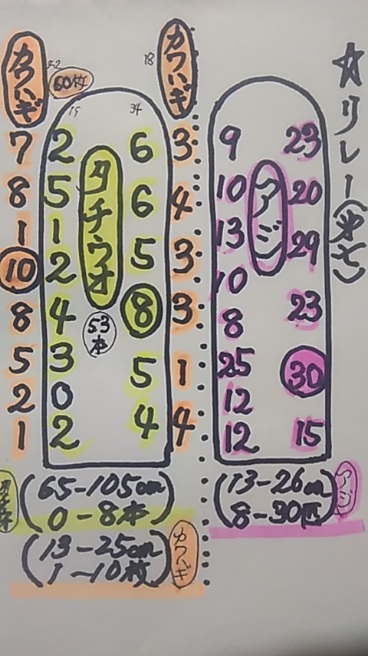 ☆リレー(弟七)
カワハギ
60枚
42
18
カワハギ
19
34
タチウオ
53本
7 2 6 3
8 5 6 4
1 1 5 3
10 2 8 3
8 4 5 1
5 3 4 4
2 0
1 2
アジ
9 23
10 20
13 29
10 23
8 30
25 15
12
12
タチウオ
(65-105cm
0-8本)
(13-25cm
1-10枚)
カワハギ
(13-26cm
8-30匹)
アジ